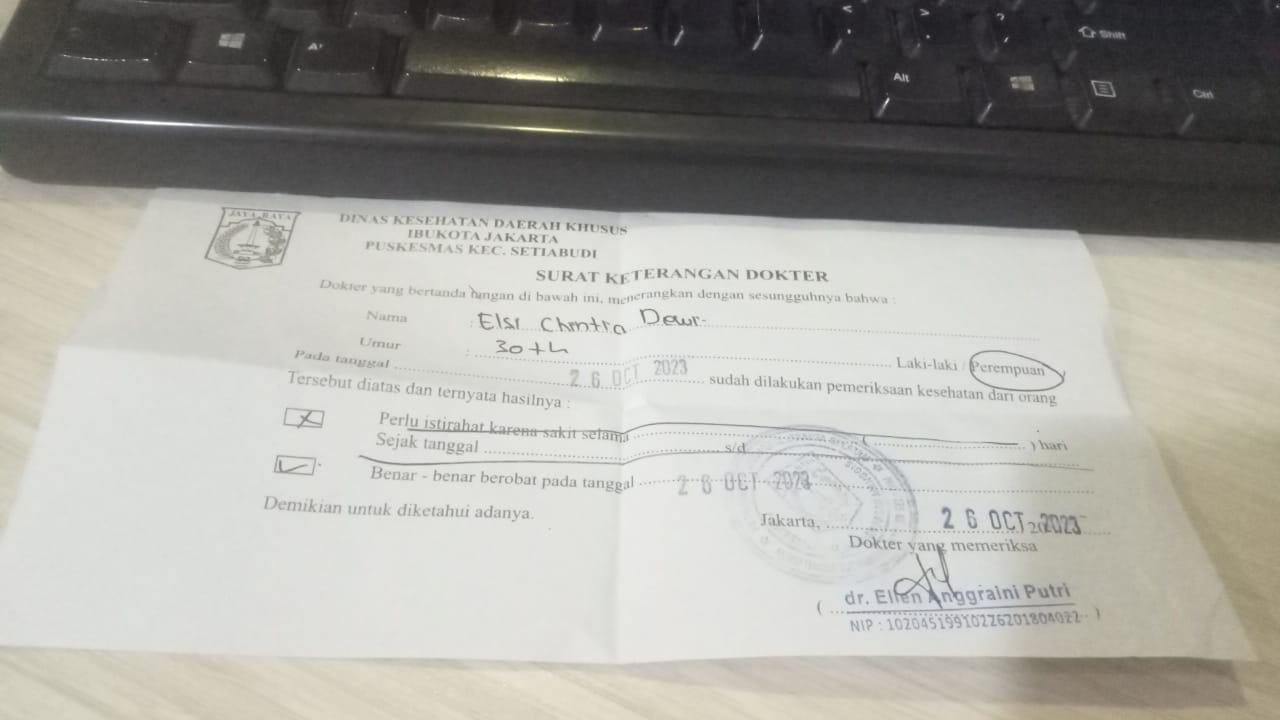 Alt
Shift
Alt
Ctrl
JAYA RAYA
DINAS KESEHATAN DAERAH KHUSUS
IBUKOTA JAKARTA
PUSKESMAS KEC. SETIABUDI
SURAT KETERANGAN DOKTER
Dokter yang bertanda tangan di bawah ini, menerangkan dengan sesungguhnya bahwa :
Nama : Elsi Chintra Dewi
Umur : 30 th Laki-laki / Perempuan
Pada tanggal 26 OCT 2023 sudah dilakukan pemeriksaan kesehatan dari orang
Tersebut diatas dan ternyata hasilnya :
Perlu istirahat karena sakit selama ( ) hari
Sejak tanggal s/d
Benar - benar berobat pada tanggal 26 OCT 2023
Demikian untuk diketahui adanya.
Jakarta, 26 OCT 2023
Dokter yang memeriksa
( dr. Ellen Anggraini Putri )
NIP : 10204519910226201804022